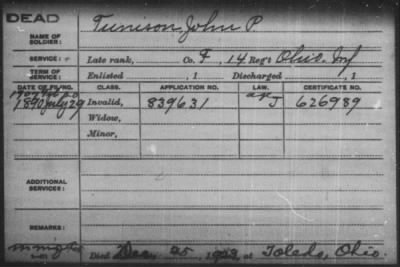 DEAD
NAME OF SOLDIER: Tunison, John P.
SERVICE: Late rank, Co. F, 14 Reg't Ohio Inf
TERM OF SERVICE: Enlisted , 1 Discharged , 1
DATE OF FILING. CLASS. APPLICATION NO. LAW. CERTIFICATE NO.
1890 July 29 Invalid, 839631 J 626989
Widow,
Minor,
ADDITIONAL SERVICES:
REMARKS:
Died Dec. 25, at Toledo, Ohio.